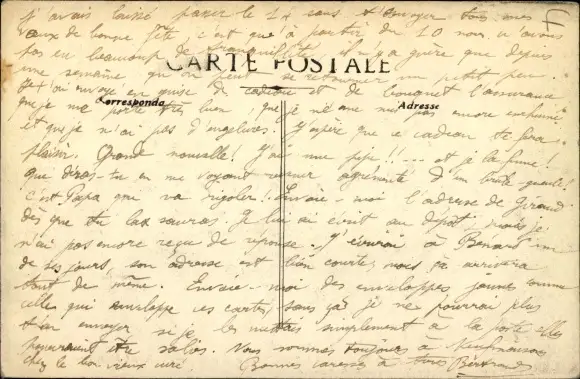 j'avais laissé passer le 12 sans t'envoyer tous mes
vœux de bonne fête, c'est que à partir du 10 nous n'avons
pas eu beaucoup de tranquillité, il n'y a guère que depuis
une semaine qu'on peut se retourner un petit peu.
CARTE POSTALE
Je t'ai envoyé en guise de cadeau et de bouquet l'assurance
Correspondance
Adresse
que je me porte très bien, que je n'ai pas encore
et que je n'ai pas d'engelures. J'espère que ce cadeau te fera
plaisir. Grande nouvelle! J'ai une pipe!!... et je la fume!
Que diras-tu en me voyant revenir agrémenté d'un brûle gueule!
c'est Papa qui va rigoler! Envoie-moi l'adresse de Giraud
dès que tu la sauras. Je lui ai écrit au dépôt mais je
n'ai pas encore reçu de réponse. J'écrirai à Bonard un
de ses jours, son adresse est bien courte, mais ça arrivera
tout de même. Envoie-moi des enveloppes jaunes comme
celle qui enveloppe ces cartes, sans ça je ne pourrai plus
t'en envoyer si je les mettais simplement à la poste elles
pourraient être salies. Nous sommes toujours à
chez le bon vieux curé. Bonnes caresses à tous Bertrand